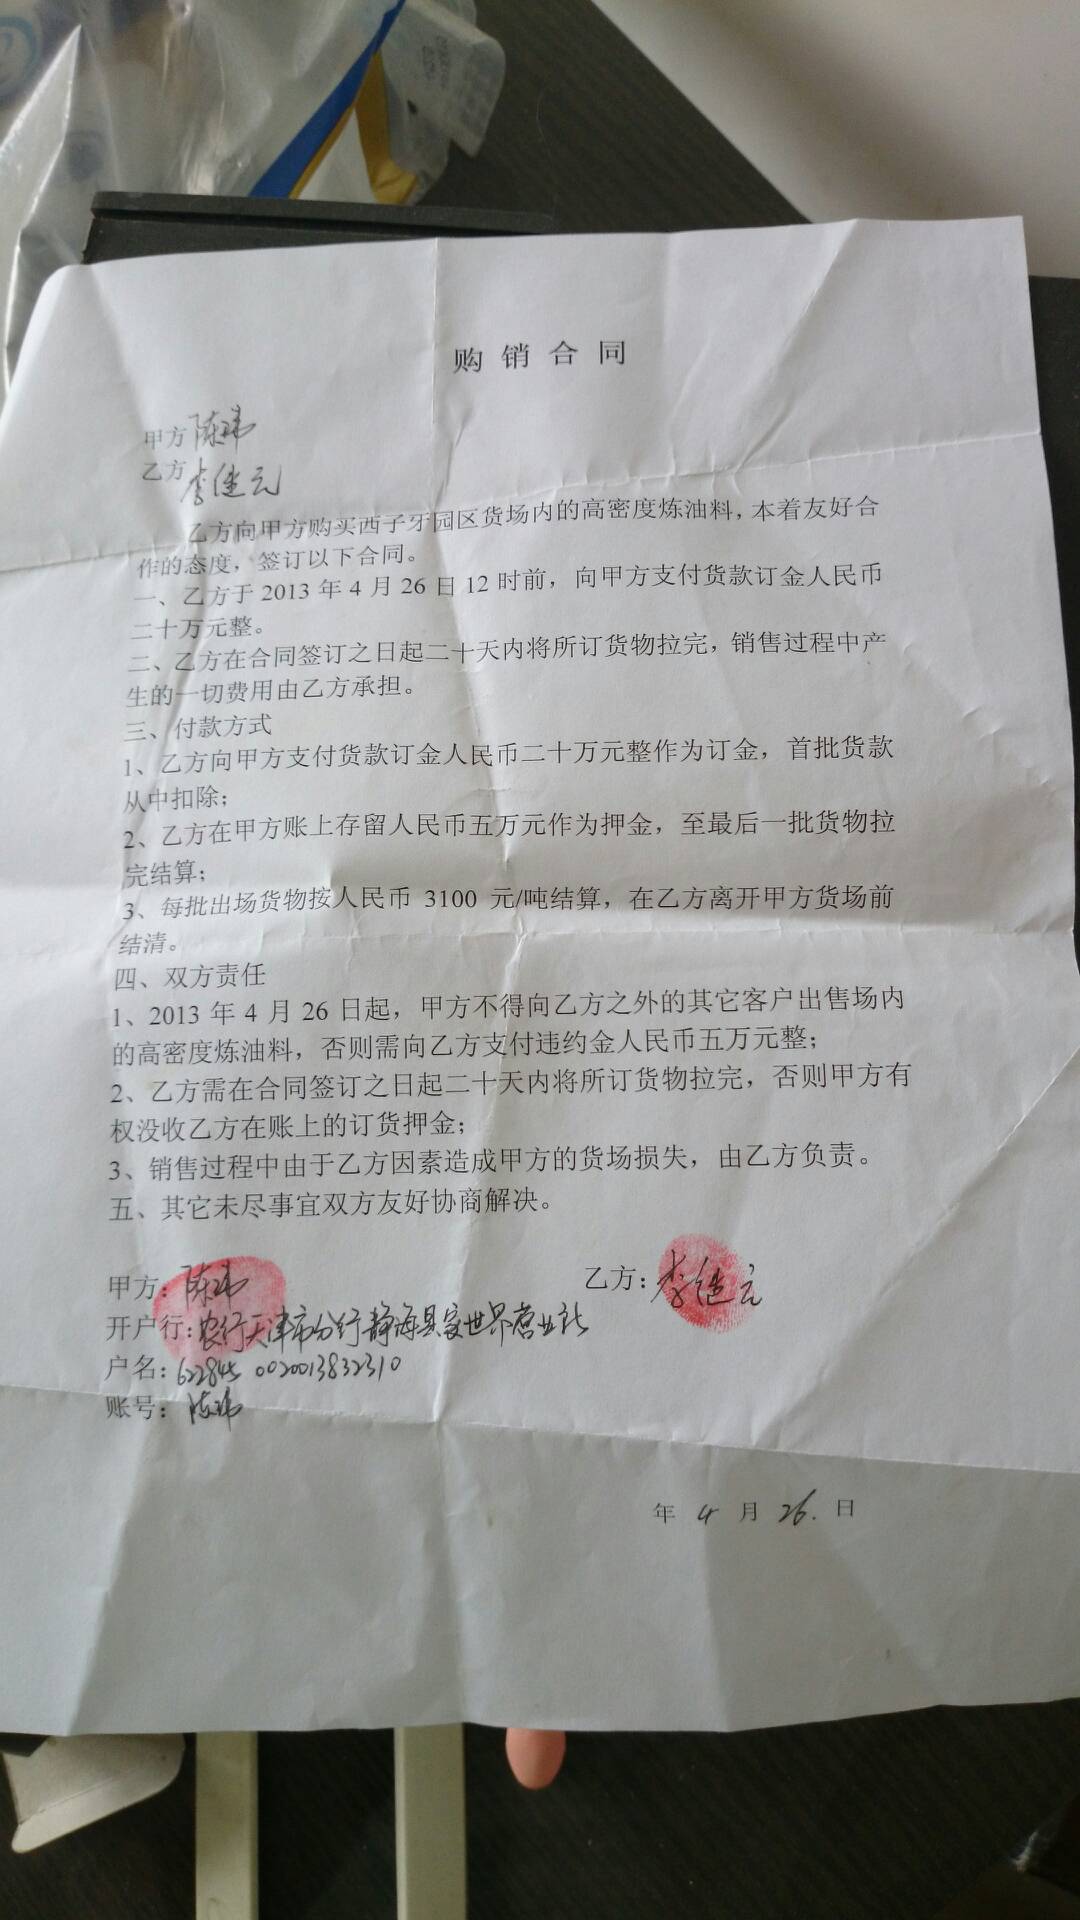 购销合同
甲方 陈玮
乙方 李继元
乙方向甲方购买西子牙园区货场内的高密度炼油料，本着友好合
作的态度，签订以下合同。
一、乙方于 2013 年 4 月 26 日 12 时前，向甲方支付货款订金人民币
二十万元整。
二、乙方在合同签订之日起二十天内将所订货物拉完，销售过程中产
生的一切费用由乙方承担。
三、付款方式
1、乙方向甲方支付货款订金人民币二十万元整作为订金，首批货款
从中扣除；
2、乙方在甲方账上存留人民币五万元作为押金，至最后一批货物拉
完结算；
3、每批出场货物按人民币 3100 元/吨结算，在乙方离开甲方货场前
结清。
四、双方责任
1、2013 年 4 月 26 日起，甲方不得向乙方之外的其它客户出售场内
的高密度炼油料，否则需向乙方支付违约金人民币五万元整；
2、乙方需在合同签订之日起二十天内将所订货物拉完，否则甲方有
权没收乙方在账上的订货押金；
3、销售过程中由于乙方因素造成甲方的货场损失，由乙方负责。
五、其它未尽事宜双方友好协商解决。
甲方：陈玮 乙方：李继元
开户行：农行天津市分行静海县家世界营业社
户名：622845 0020013832310
账号：陈玮
年 4 月 26. 日